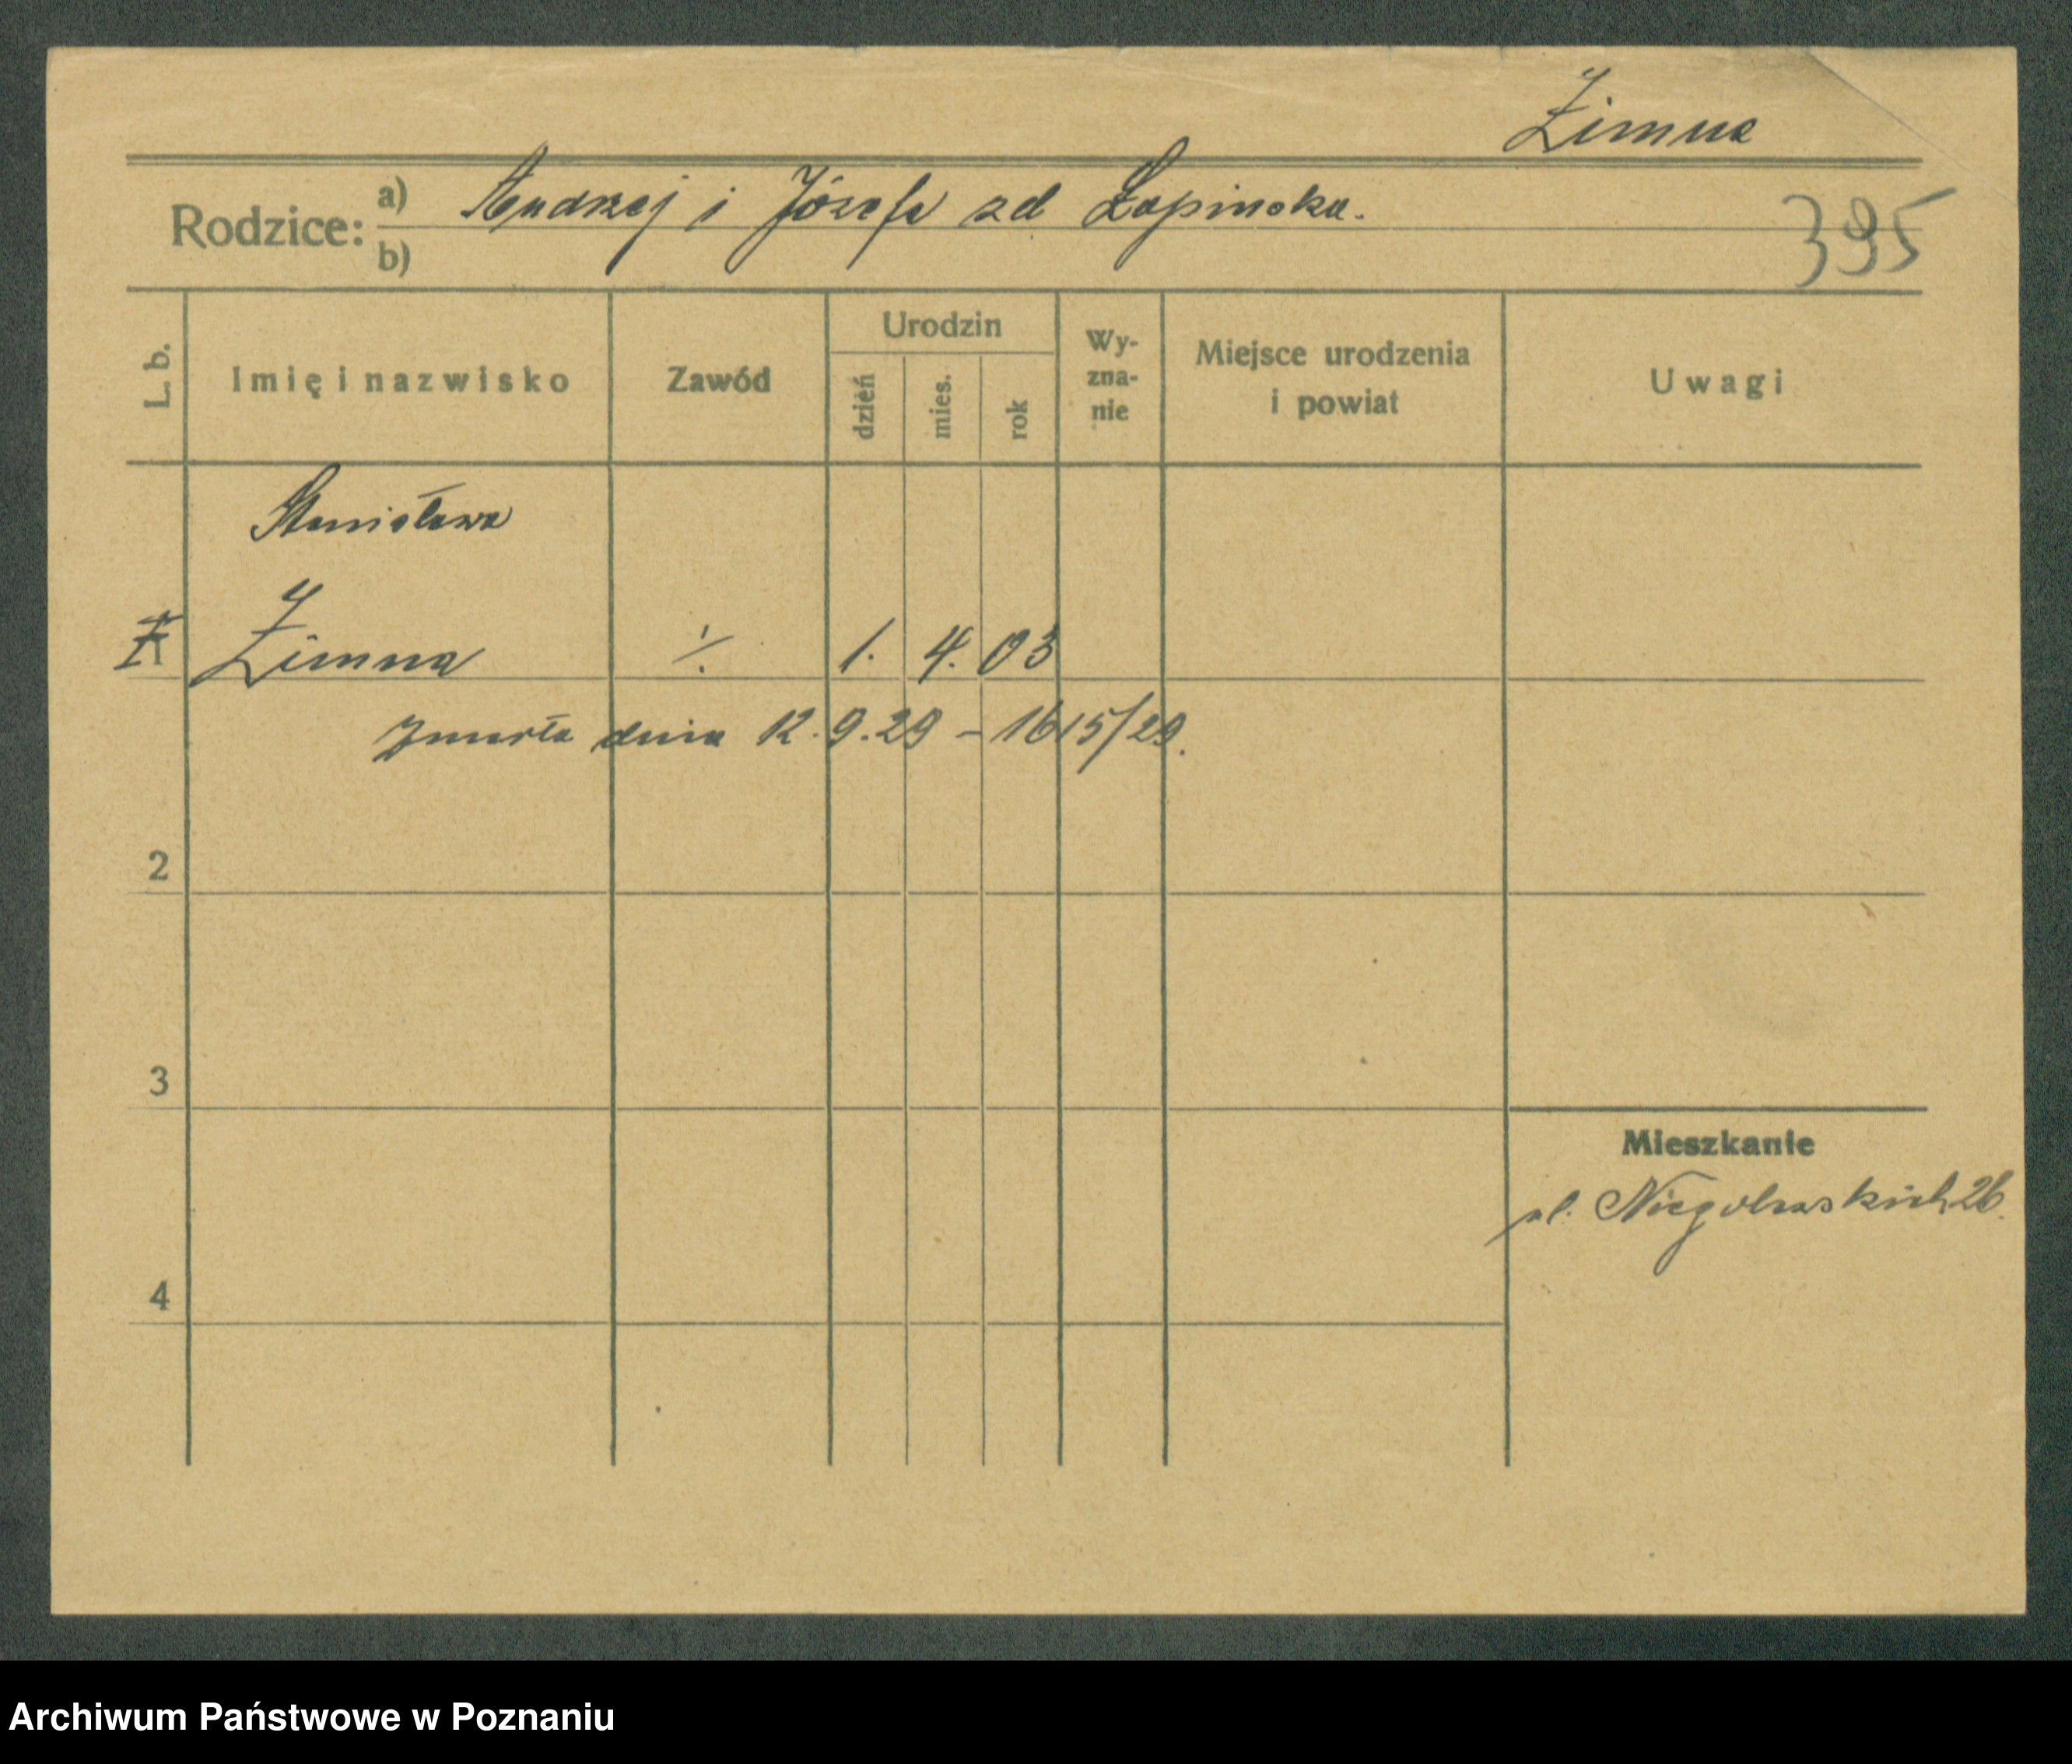 Zimna
Rodzice: a) Andrzej i Józefa zd Łapinska.
b)
395
L. b.
Imię i nazwisko
Zawód
Urodzin
dzień
mies.
rok
Wy-
zna-
nie
Miejsce urodzenia
i powiat
Uwagi
Stanisława
1 Zimna ./. 1. 4. 03
Zmarła dnia 12.9.29 – 1615/29.
2
3
4
Mieszkanie
ul. Niegolewskich 26.
Archiwum Państwowe w Poznaniu